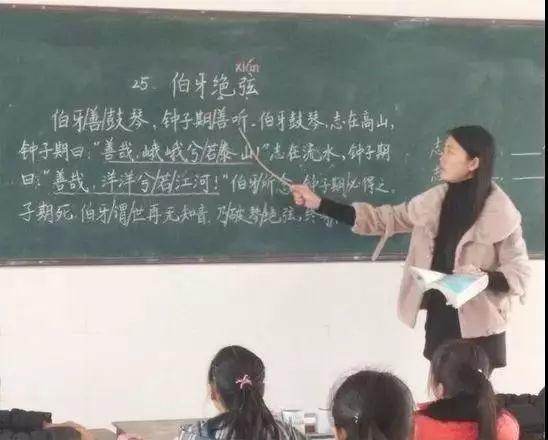 xián
25. 伯牙绝弦
伯牙/善/鼓琴,钟子期/善听。伯牙鼓琴,志在高山,
钟子期曰:“善哉,峨峨兮/若泰山!”志在流水,钟子期
曰:“善哉,洋洋兮/若江河!”伯牙/所念,钟子期/必得之。
子期死,伯牙/谓/世再无知音,乃/破琴/绝弦,终